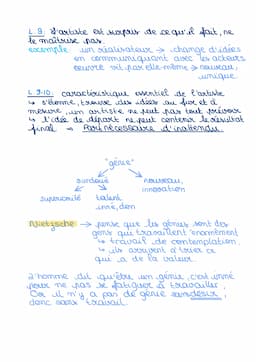 L. 9. L'artiste est surpris de ce qu'il fait, ne
le maîtrise pas.
exemple un réalisateur → change d'idées
en communiquant avec les acteurs
œuvre vit par elle-même → nouveau,
unique.
L. 9-10. caractéristique essentiel de l'artiste
↳ s'étonne, trouve des idées au fur et à
mesure, un artiste ne peut pas tout prévoir
↳ L'idée de départ ne peut contenir le résultat
final → Part nécessaire d'inattendu.
"génie"
surdoué
nouveau,
innovation
supériorité
talent
inné, don
Nietzsche → pense que les génies sont des
gens qui travaillent énormément
↳ travail de contemplation.
↳ ils arrivent à trier ce
qui a de la valeur.
L'homme dit qu'être un génie, c'est inné
pour ne pas se fatiguer à travailler,
Or il n'y a pas de génie sans désir,
donc sans travail.